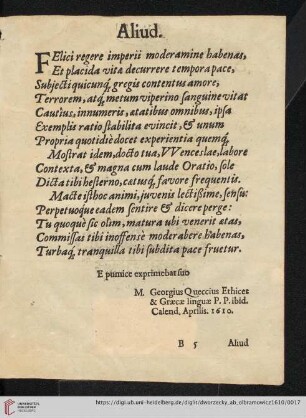 Aliud.
FElici regere imperii moderamine habenas,
Et placida vita decurrere tempora pace,
Subjecti quicunq́; gregis contentus amore,
Terrorem, atq́; metum viperino sanguine vitat
Cautius, innumeris, atatibus omnibus, ipsa
Exemplis ratio stabilita evincit, & unum
Propria quotidiè docet experientia quemq́;
Mostrat idem, docto tua, VVencesláe, labore
Contexta, & magna cum laude Oratio, sole
Dicta tibi hesterno, cœtuq́; favore frequentis.
Macte isthoc animi, juvenis lectißime, sensu:
Perpetuoque eadem sentire & dicere perge:
Tu quoque sic olim, matura ubi venerit ætas,
Commissas tibi inoffensè moderabere habenas,
Turbaq́; tranquilla tibi subdita pace fruetur.
E pumice exprimebat suo
M. Georgius Queccius Ethices
& Græcæ linguæ P. P. ibid.
Calend. Aprilis. 1610.
B 5
Aliud
UNIVERSITÄTS-
BIBLIOTHEK
HEIDELBERG
https://digi.ub.uni-heidelberg.de/diglit/dworzecky_ab_olbramowicz1610/0017